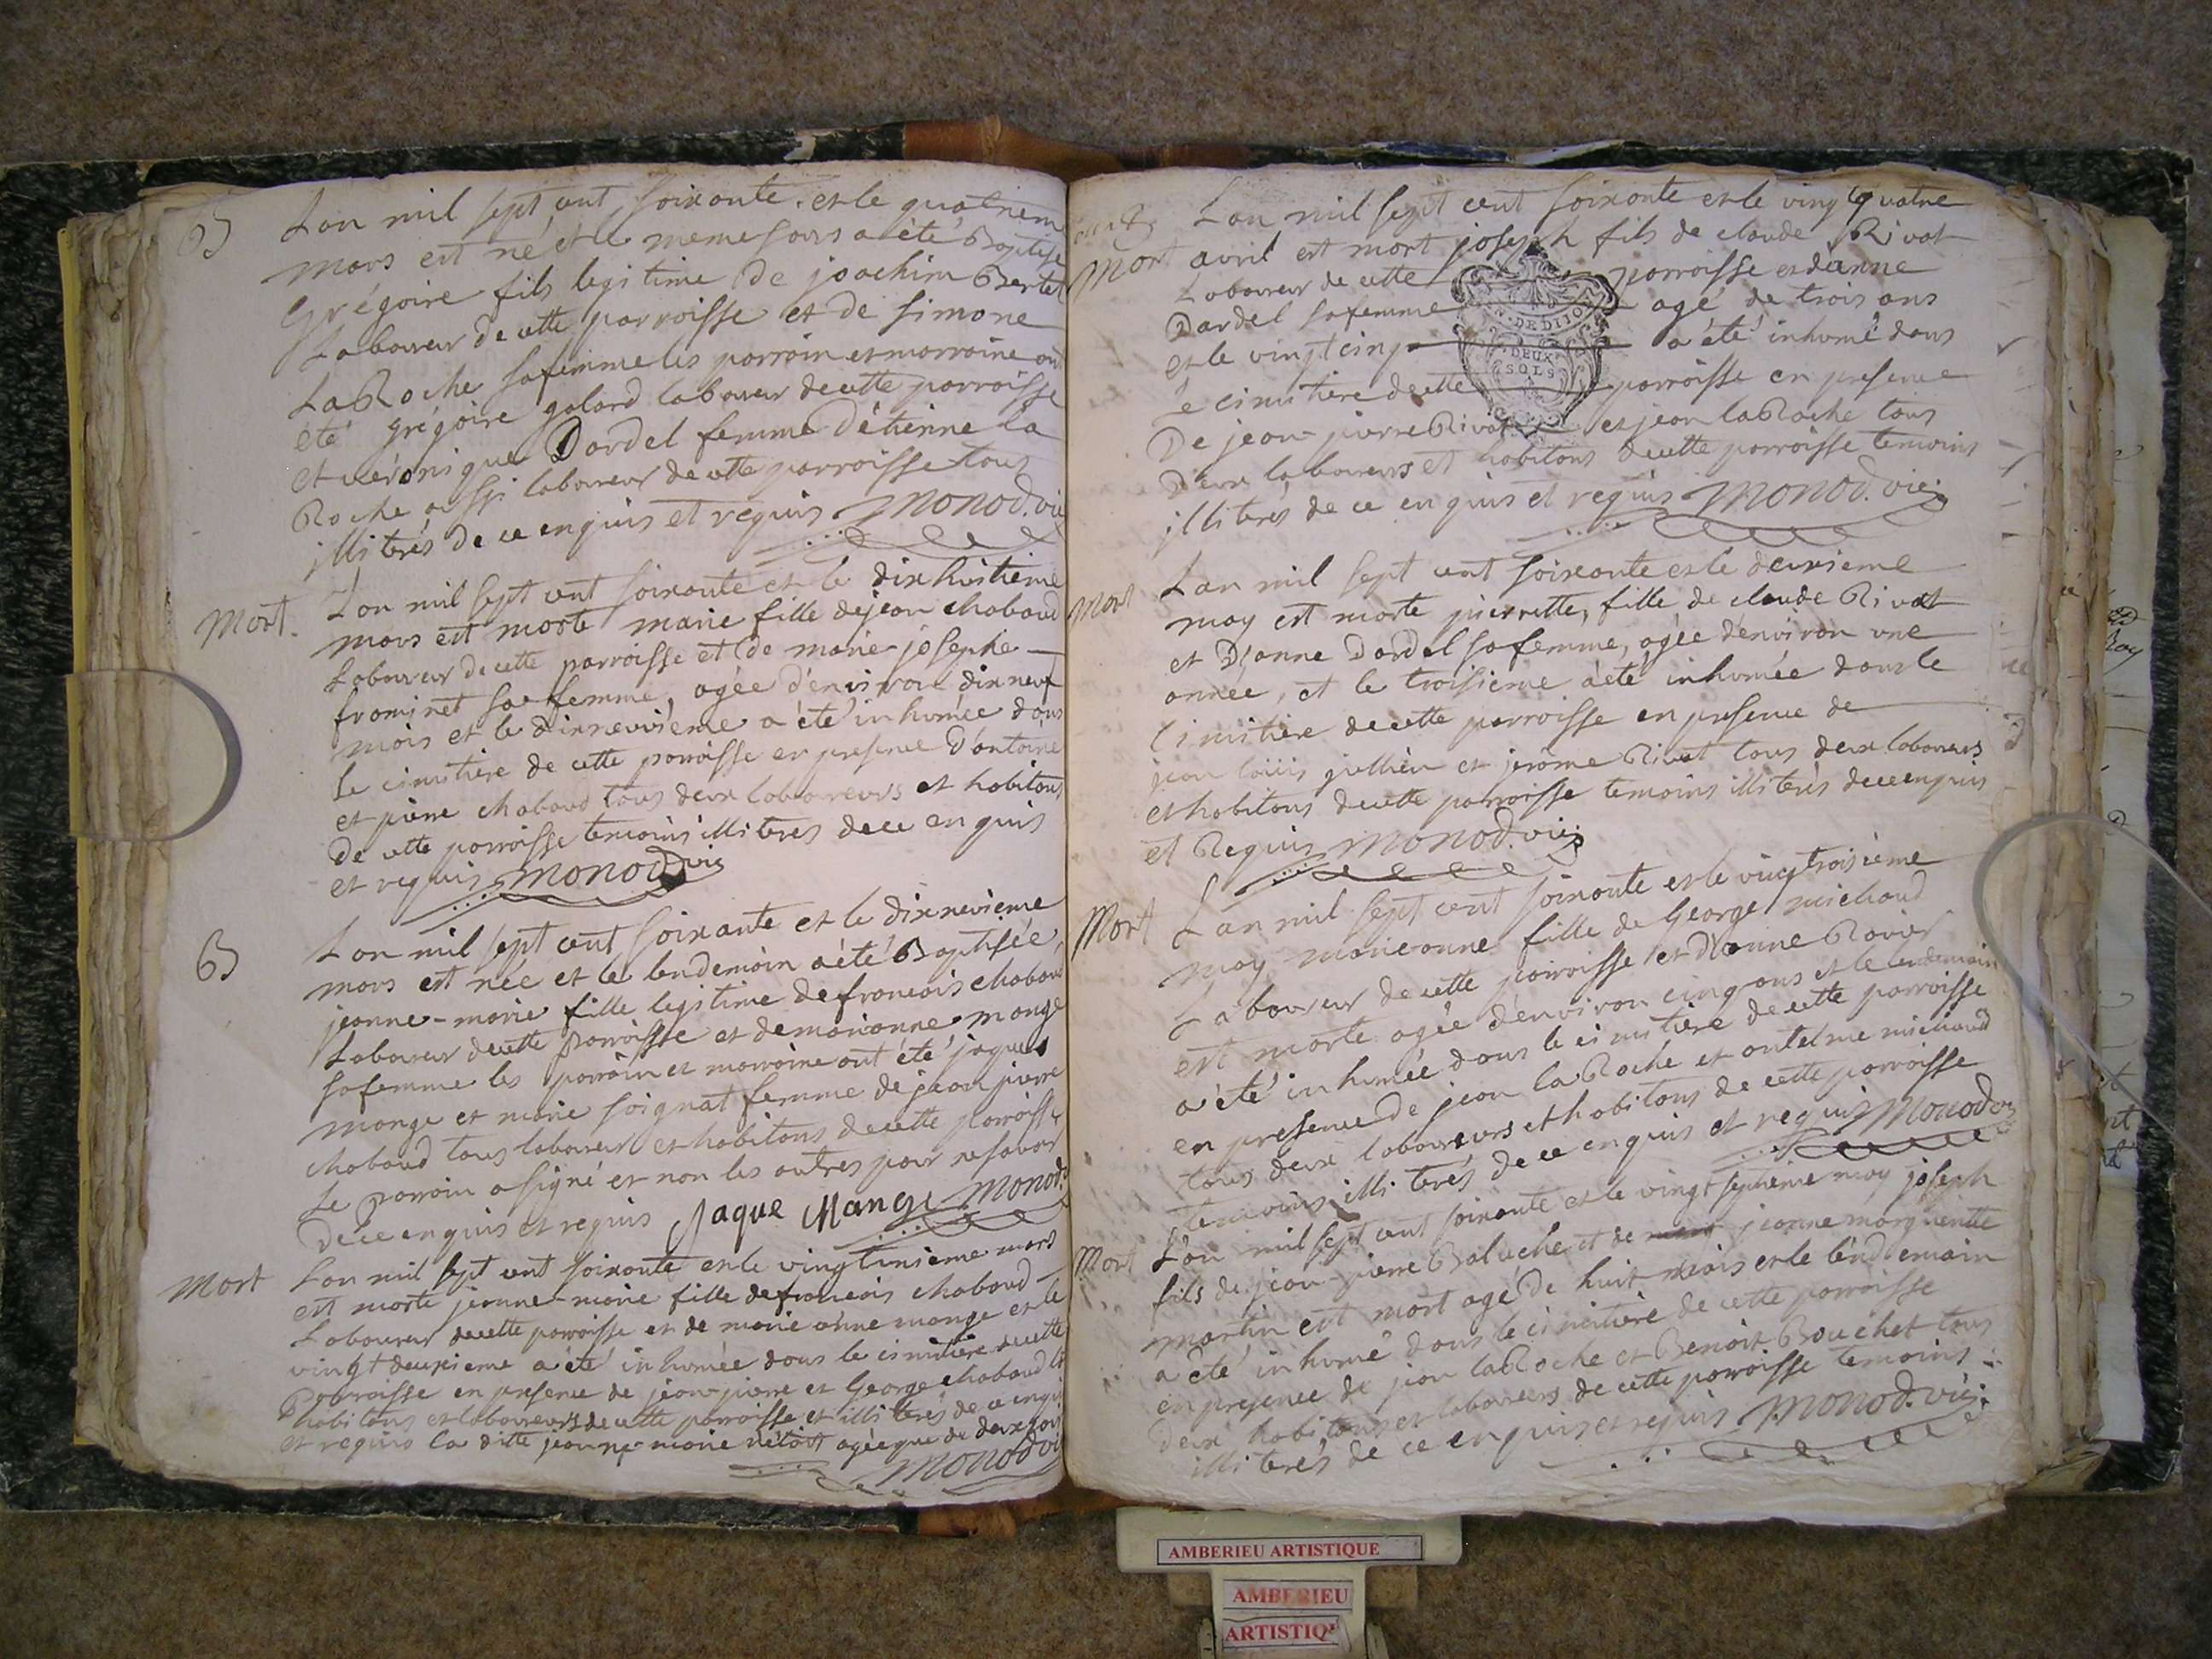 B
L'an mil sept cent soixante et le quatrieme
mars est né et le meme jours a été Baptisé
Grégoire fils legitime de joachim Bertet
Laboureur de cette parroisse et de simone
LaRoche sa femme les parrain et marraine ont
été grégoire galard laboureur de cette parroisse
et véronique Dardel femme d'étienne la
Roche aussi laboureur de cette parroisse tous
jllitérés de ce enquis et requis Monod. vic
Mort.
L'an mil sept cent soixante et le dixhuitieme
mars est morte marie fille de jean chabaud
Laboureur de cette parroisse et de marie-josephe
frominet sa femme, agée d'environ dixneuf
mois et le dixneuvieme a été inhumée dans
Le cimitière de cette parroisse en presence d'antoine
et pierre chabaud tous deux laboureurs et habitans
de cette parroisse temoins illiteres de ce enquis
et requis monod vic
B
L'an mil sept cent soixante et le dixnevieme
mars est née et le lendemain a été Baptisée
jeanne-marie fille legitime de francois chabaud
Laboureur de cette parroisse et de marianne mange
sa femme les parrain et marraine ont été jaques
mange et marie soignat femme de jean pierre
chabaud tous laboureur et habitans de cette parroisse
Le parrain a signé et non les autres pour ne savoir
de ce enquis et requis Jaque Mange monod.
Mort
L'an mil sept cent soixante et le vingtunieme mars
est morte jeanne-marie fille de francois chabaud
Laboureur de cette parroisse et de marie anne mange et le
vingt deuxieme a été inhumée dans le cimitière de cette
Parroisse en presence de jean-pierre et George chabaud
habitans et laboureurs de cette parroisse et illiterés de ce enquis
et requis la ditte jeanne-marie n'étoit agée que de deux jours
monod vic
Mort
L'an mil sept cent soixante et le vingt quatre
avril est mort joseph fils de claude Rivat
Laboureur de cette parroisse et d'anne
Dardel sa femme agé de trois ans
et le vingt cinq a été inhumé dans
Le cimitière de cette parroisse en presence
De jean-pierre Rivat et jean laRoche tous
Deux laboureurs et habitans de cette parroisse temoins
jllitérés de ce enquis et requis Monod. vic.
N. DE DIJON
DEUX
SOLS
Mort
L'an mil sept cent soixante et le deuxieme
may est morte pierrette, fille de claude Rivat
et D'anne Dardel sa femme, agée d'environ une
année, et le troisieme a été inhumée dans le
Cimitière de cette parroisse en presence de
jean loüis jullien et jerôme Rivat tous deux laboureurs
et habitans de cette parroisse temoins illiterés de ce enquis
et Requis monod. vic.
Mort
L'an mil sept cent soixante et le vingt troisième
may marie anne fille de George michaud
Laboureur de cette parroisse et D'anne Ravier
est morte agée d'environ cinq ans et le lendemain
a été inhumée dans le cimitière de cette parroisse
en presence de jean la Roche et antelme michaud
tous deux laboureurs et habitans de cette parroisse
temoins illiterés de ce enquis et requis Monod vic
Mort
L'an mil sept cent soixante et le vingt septieme may joseph
fils de jean-pierre Baluche et de jeanne marguerite
martin est mort agé de huit mois et le lendemain
a été inhumé dans le cimitière de cette parroisse
en presence de jean laRoche et Benoit Bouchet tous
Deux habitans et laboureurs de cette parroisse temoins
illiterés de ce enquis et requis Monod. vic.
AMBERIEU ARTISTIQUE
AMBERIEU
ARTISTIQ